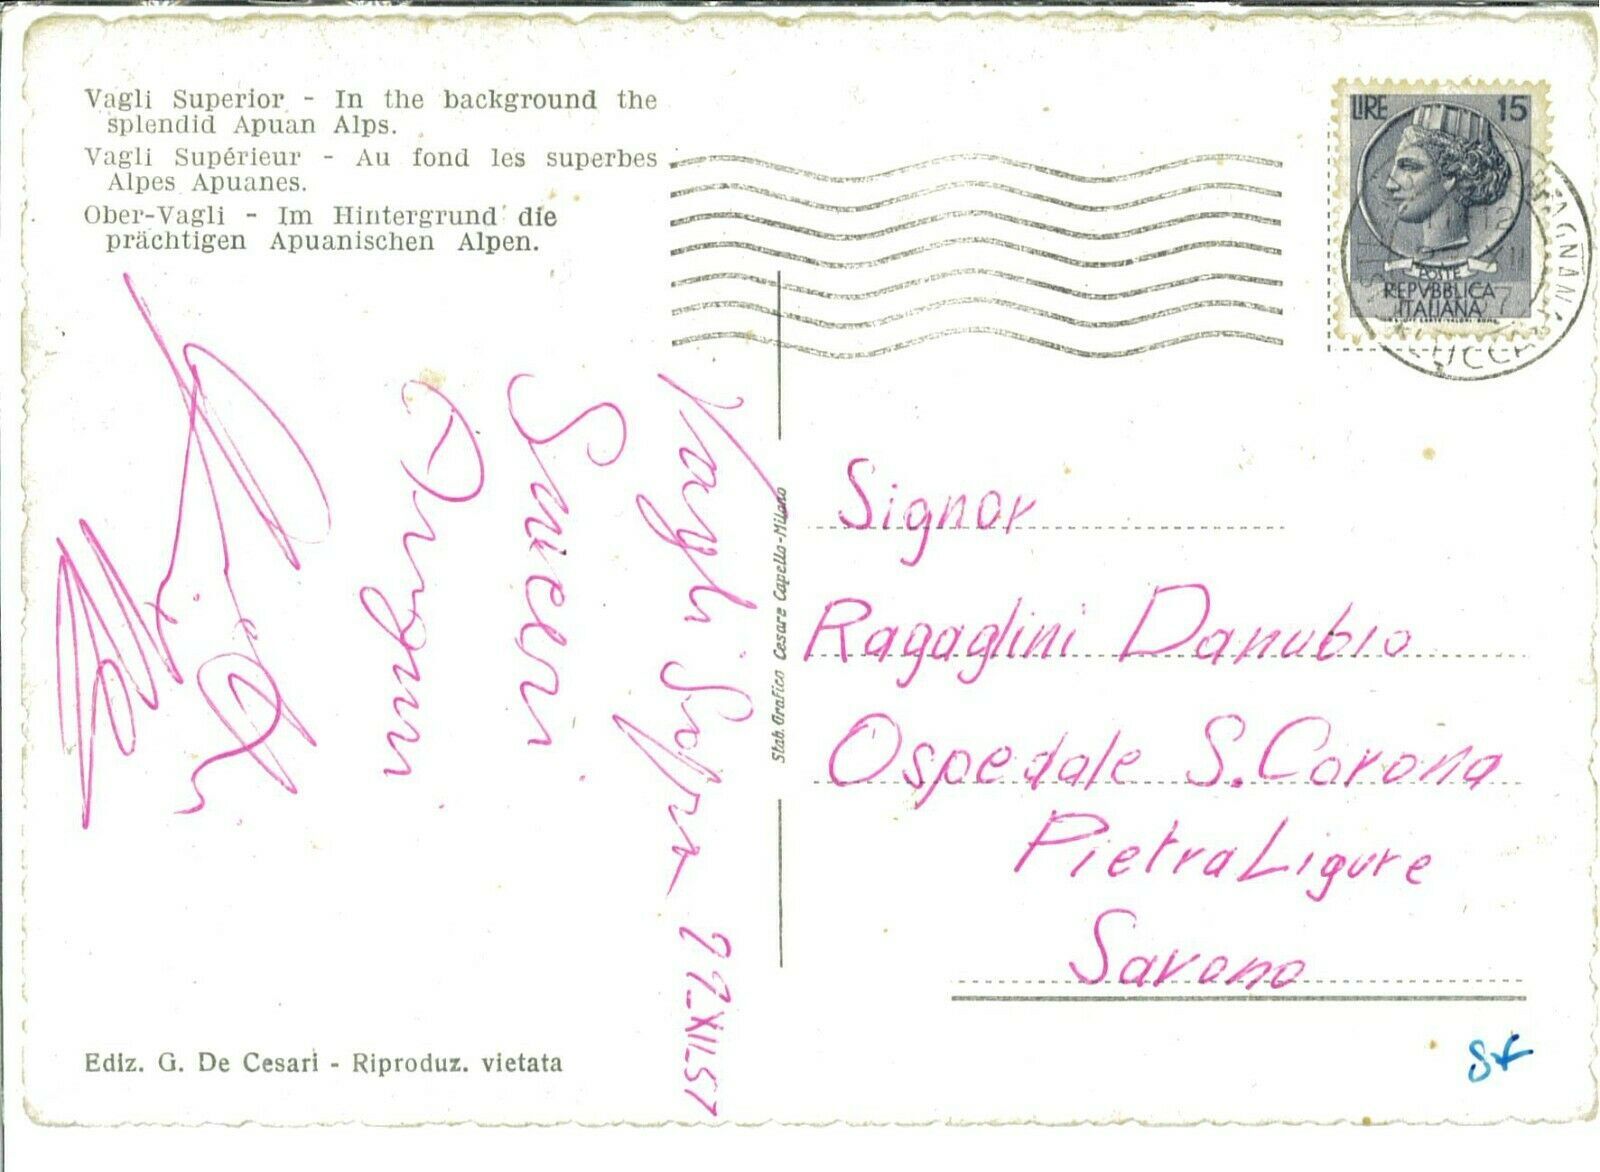 Vagli Superior - In the background the
splendid Apuan Alps.
Vagli Supérieur - Au fond les superbes
Alpes Apuanes.
Ober-Vagli - Im Hintergrund die
prächtigen Apuanischen Alpen.
LIRE 15
POSTE
REPVBBLICA
ITALIANA
LUCCA
Vagli Sopra
Sinceri
Auguri
Stab. Grafico Cesare Capello-Milano
Signor
Ragaglini Danubio
Ospedale S. Corona
Pietra Ligure
Savona
Ediz. G. De Cesari - Riproduz. vietata